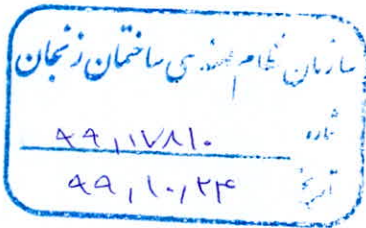 سازمان نظام مهندسی ساختمان زنجان
شماره ۹۹,۱۱۷۸۱۰
تاریخ ۹۹,۱۰,۲۴